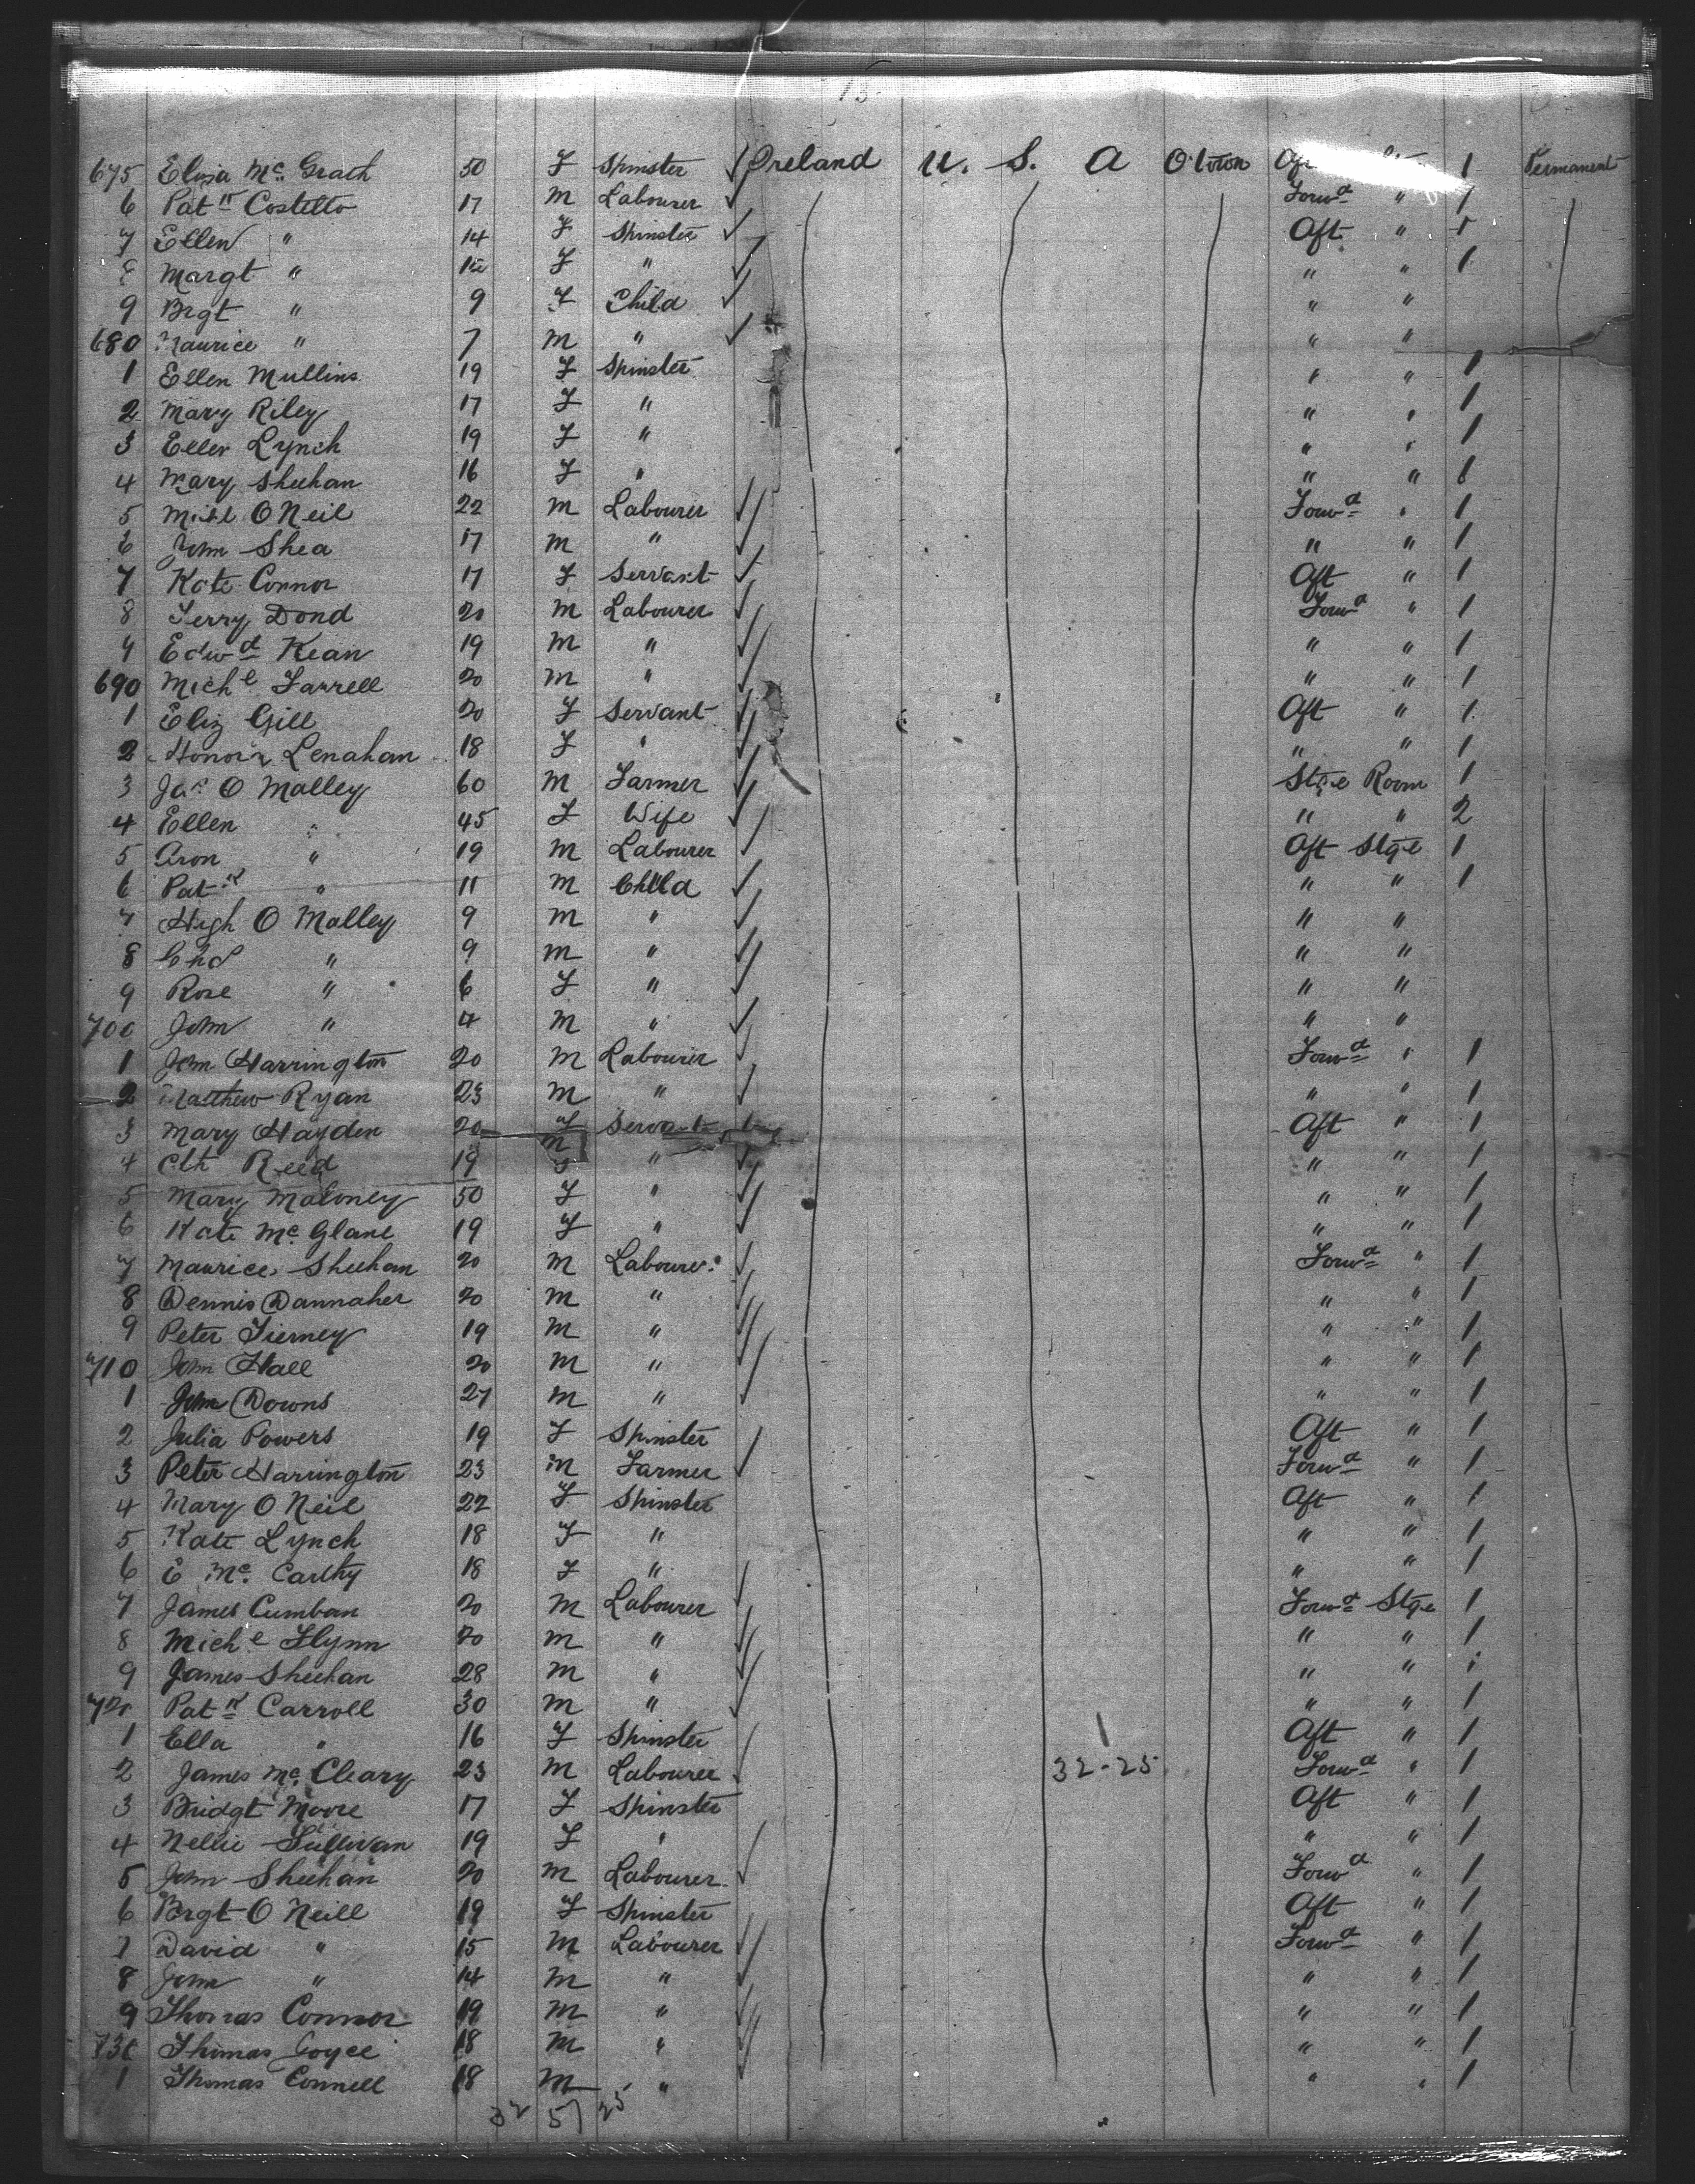 15
675 Eliza Mc Grath 50 F Spinster Ireland U. S. A O'town 1 Permanent
6 Patk Costello 17 M Labourer Forwd " 1
7 Ellen " 14 F Spinster Aft " 1
8 Margt " 12 F " " " 1
9 Brgt " 9 F Child " "
680 Maurice " 7 M " " "
1 Ellen Mullins 19 F Spinster " " 1
2 Mary Riley 17 F " " " 1
3 Ellen Lynch 19 F " " " 1
4 Mary Sheehan 16 F " " " 1
5 O Neil 22 M Labourer Forwd " 1
6 John Shea 17 M " " " 1
7 Kate Connor 17 F Servant Aft " 1
8 Terry Dond 20 M Labourer Forwd " 1
9 Edwd Kean 19 M " " " 1
690 Michl Farrell 20 M " " " 1
1 Eliz Gill 20 F Servant Aft " 1
2 Honora Lenahan 18 F " " " 1
3 Jas O Malley 60 M Farmer Stge Room 1
4 Ellen " 45 F Wife " " 2
5 Aron " 19 M Labourer Aft Stge 1
6 Patk " 11 M Child " " 1
7 Hugh O Malley 9 M " " "
8 Chs " 9 M " " "
9 Rose " 6 F " " "
700 John " 4 M " " "
1 John Harrington 20 M Labourer Forwd " 1
2 Matthew Ryan 23 M " " " 1
3 Mary Hayden 20 F Servant Aft " 1
4 Reed 19 " " " 1
5 Mary Maloney 50 F " " " 1
6 Kate Mc Glane 19 F " " " 1
7 Maurice Sheehan 20 M Labourer Forwd " 1
8 Dennis Dannaher 20 M " " " 1
9 Peter Tierney 19 M " " " 1
710 John Hall 20 M " " " 1
1 John Downs 27 M " " " 1
2 Julia Powers 19 F Spinster Aft " 1
3 Peter Harrington 23 M Farmer Forwd " 1
4 Mary O Neil 22 F Spinster Aft " 1
5 Kate Lynch 18 F " " " 1
6 E Mc Carthy 18 F " " " 1
7 James Cumban 20 M Labourer Forwd Stge 1
8 Michl Flynn 20 M " " " 1
9 James Sheehan 28 M " " " 1
720 Patk Carroll 30 M " " " 1
1 Ella " 16 F Spinster Aft " 1
2 James Mc Cleary 23 M Labourer 32-25 Forwd " 1
3 Bridgt Moore 17 F Spinster Aft " 1
4 Nellie Sullivan 19 F " " " 1
5 John Sheehan 20 M Labourer Forwd " 1
6 Brgt O Neill 19 F Spinster Aft " 1
7 David " 15 M Labourer Forwd " 1
8 John " 14 M " " " 1
9 Thomas Connor 19 M " " " 1
730 Thomas Joyce 18 M " " " 1
1 Thomas Connell 18 M " " " 1
32 57 25